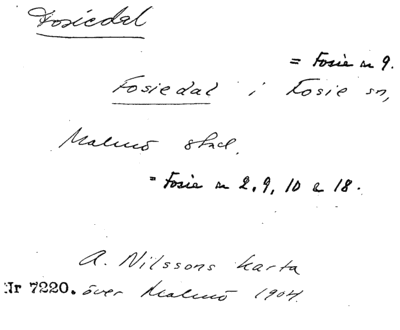 Fosiedal
= Fosie n 9.
Fosiedal i Fosie sn,
Malmö stad.
= Fosie n 2, 9, 10 o 18.
A. Nilssons karta
Nr 7220. över Malmö 1904.